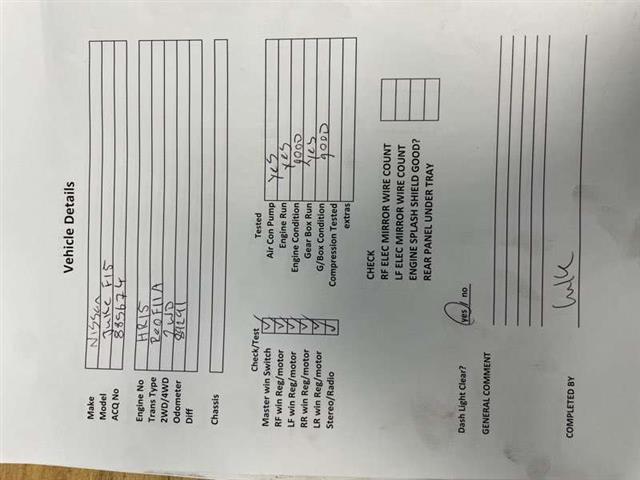 Vehicle Details
Make Nissan
Model Juke F15
ACQ No 885674
Engine No HR15
Trans Type Re0F11A
2WD/4WD 2WD
Odometer 81291
Diff
Chassis
Check/Test
Master win Switch
RF win Reg/motor
LF win Reg/motor
RR win Reg/motor
LR win Reg/motor
Stereo/Radio
Tested
Air Con Pump yes
Engine Run yes
Engine Condition good
Gear Box Run yes
G/Box Condition good
Compression Tested
extras
CHECK
RF ELEC MIRROR WIRE COUNT
LF ELEC MIRROR WIRE COUNT
ENGINE SPLASH SHIELD GOOD?
REAR PANEL UNDER TRAY
Dash Light Clear? yes / no
GENERAL COMMENT
COMPLETED BY